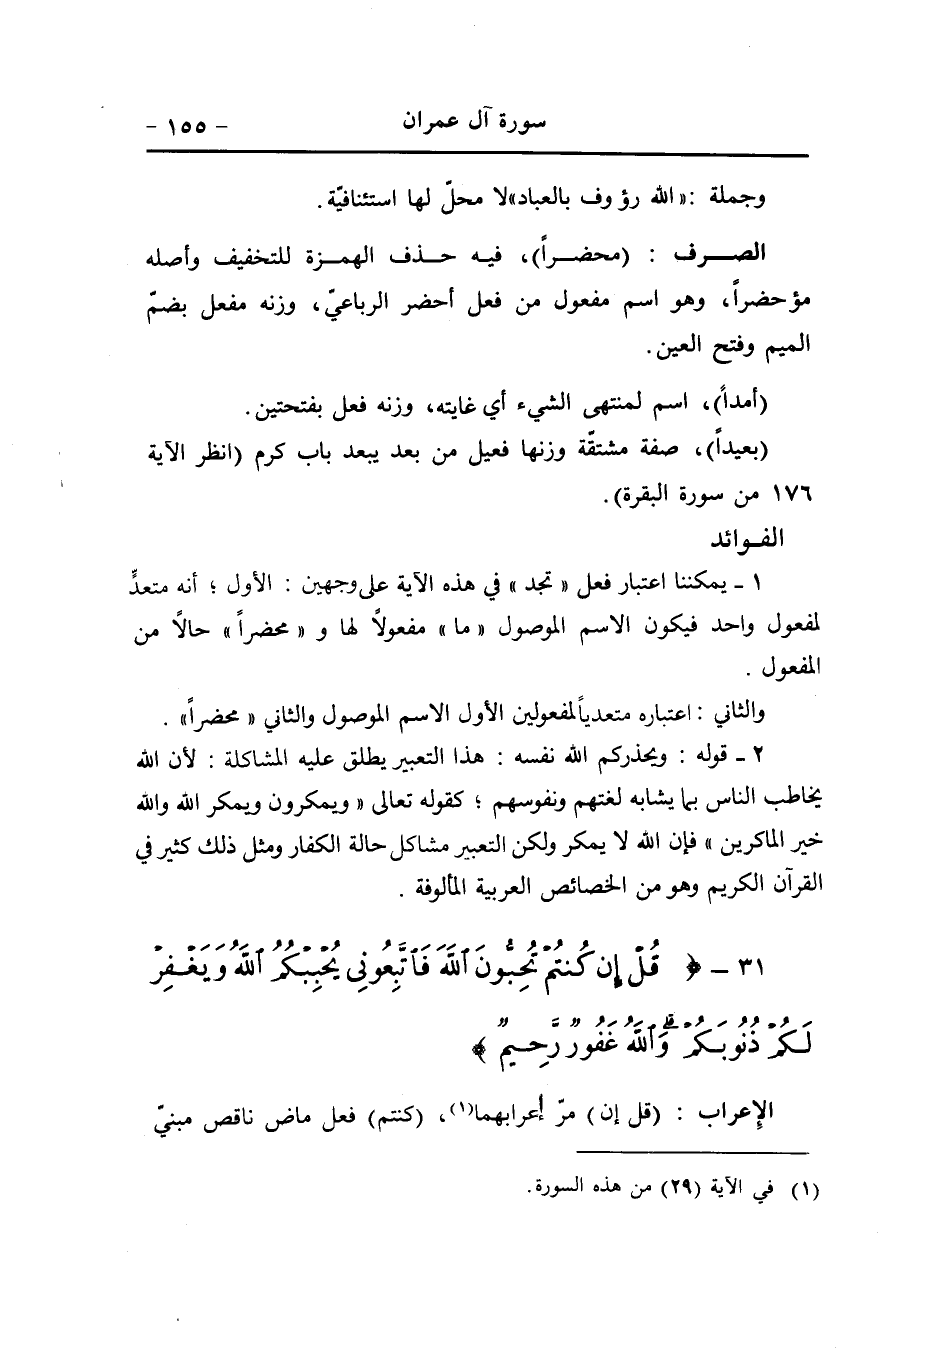 سورة آل عمران - ١٥٥ -
وجملة :«الله رؤوف بالعباد»لا محلّ لها استئنافيّة.
الصرف : (محضراً)، فيه حذف الهمزة للتخفيف وأصله
مؤحضراً، وهو اسم مفعول من فعل أحضر الرباعيّ، وزنه مفعل بضمّ
الميم وفتح العين.
(أمداً)، اسم لمنتهى الشيء أي غايته، وزنه فعل بفتحتين.
(بعيداً)، صفة مشتقّة وزنها فعيل من بعد يبعد باب كرم (انظر الآية
١٧٦ من سورة البقرة).
الفوائد
١ - يمكننا اعتبار فعل « تجد » في هذه الآية على وجهين : الأول ؛ أنه متعدٍّ
لمفعول واحد فيكون الاسم الموصول « ما » مفعولاً لها و « محضراً » حالاً من
المفعول .
والثاني : اعتباره متعدياً لمفعولين الأول الاسم الموصول والثاني « محضراً» .
٢ - قوله : ويحذركم الله نفسه : هذا التعبير يطلق عليه المشاكلة : لأن الله
يخاطب الناس بما يشابه لغتهم ونفوسهم ؛ كقوله تعالى « ويمكرون ويمكر الله والله
خير الماكرين » فإن الله لا يمكر ولكن التعبير مشاكل حالة الكفار ومثل ذلك كثير في
القرآن الكريم وهو من الخصائص العربية المألوفة .
٣١ - ﴿ قُلْ إِن كُنتُمْ تُحِبُّونَ ٱللَّهَ فَٱتَّبِعُونِى يُحْبِبْكُمُ ٱللَّهُ وَيَغْفِرْ
لَكُمْ ذُنُوبَكُمْ ۗ وَٱللَّهُ غَفُورٌ رَّحِيمٌ ﴾
الإعراب : (قل إن) مرّ أعرابهما(١)، (كنتم) فعل ماض ناقص مبنيّ
(١) في الآية (٢٩) من هذه السورة.